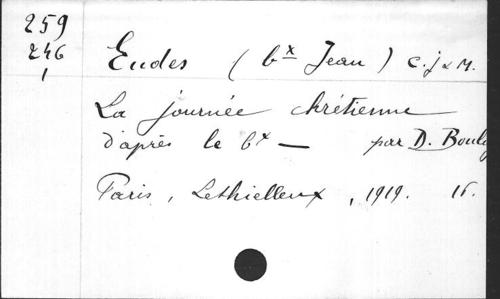 259
246
1
Eudes (bx Jean) c. j & M.
La journée chrétienne
d'après le bx — par D. Boule
Paris, Lethielleux, 1919. 16.